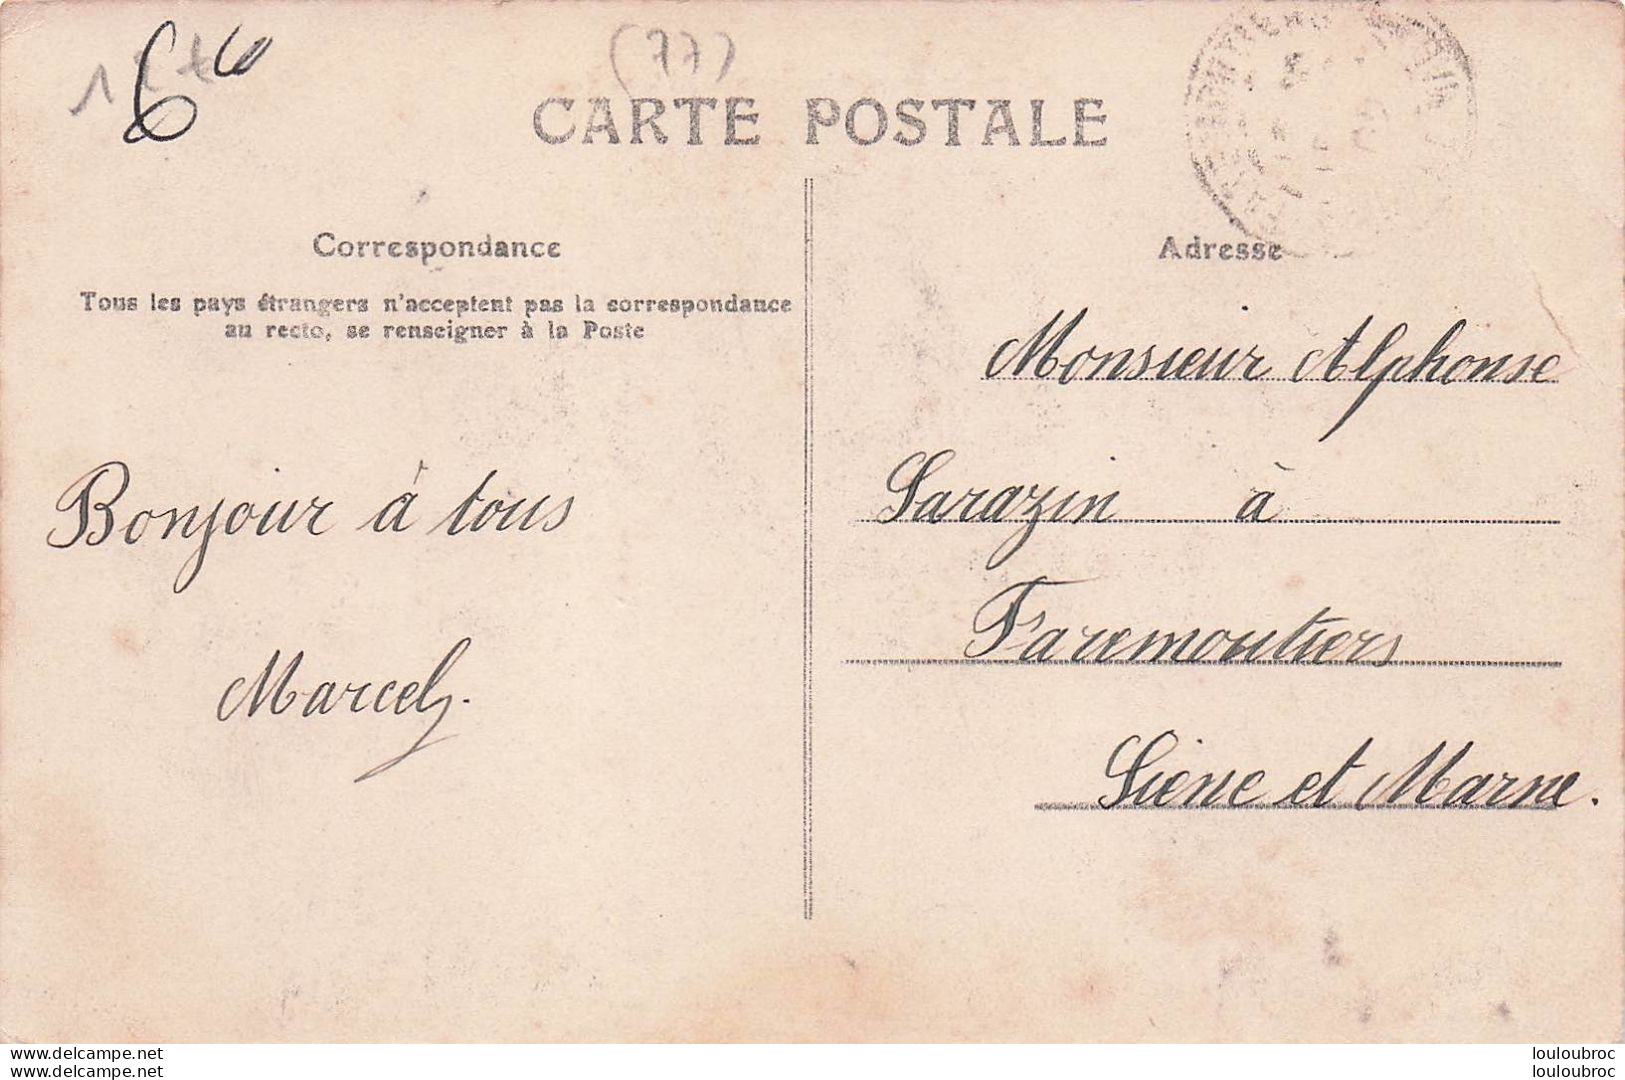 (77)
CARTE POSTALE
Correspondance
Tous les pays étrangers n'acceptent pas la correspondance
au recto, se renseigner à la Poste
Bonjour à tous
Marcel.
Adresse
Monsieur Alphonse
Sarazin à
Faremoutiers
Siene et Marne.
www.delcampe.net
www.delcampe.net
louloubroc
louloubroc